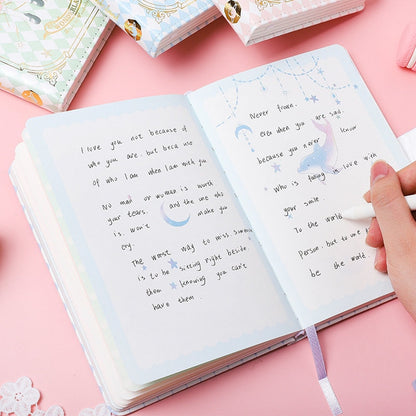 I love you not because of
who you are. but becase
of who I am when I am with you
No mad or woman is word
your tears. and the one who
is. won't make you
cry.
The worst way to miss. someone
is to be siteing right beside.
them knowing you can't
have them.
Never frown.
even when you are sad
because you never know
who is falling in love with
your smile.
To the world
Person. but to one
be the world